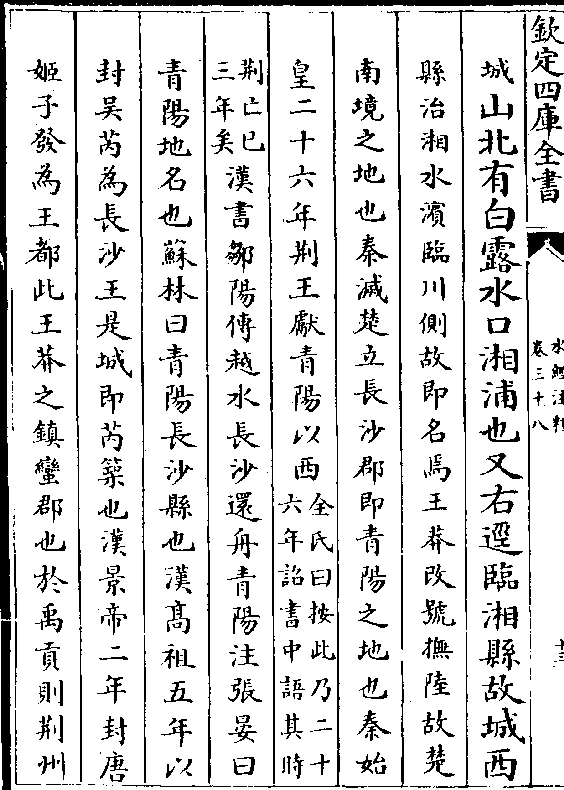 欽定四庫全書
水經注釋
卷三十八
城山北有白露水口湘浦也又右逕臨湘縣故城西
縣治湘水濱臨川側故即名焉王莽改號撫陸故楚
南境之地也秦滅楚立長沙郡即青陽之地也秦始
皇二十六年荆王獻青陽以西全氏曰按此乃二十六年詔書中語其時
荆亡已三年矣漢書鄒陽傳越水長沙還舟青陽注張晏曰
青陽地名也蘇林曰青陽長沙縣也漢髙祖五年以
封吴芮為長沙王是城即芮築也漢景帝二年封唐
姬子發為王都此王莽之鎮蠻郡也於禹貢則荆州